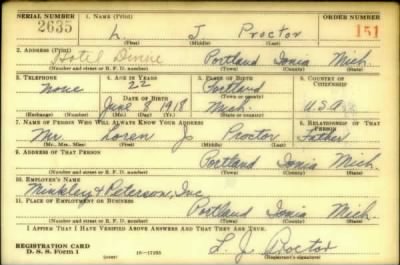 SERIAL NUMBER 1. NAME (Print) ORDER NUMBER
2635 L. J Proctor 151
(First) (Middle) (Last)
2. ADDRESS (Print)
Hotel Divine Portland Ionia Mich.
(Number and street or R. F. D. number) (Town) (County) (State)
3. TELEPHONE 4. AGE IN YEARS 5. PLACE OF BIRTH 6. COUNTRY OF CITIZENSHIP
None 22 Portland
DATE OF BIRTH (Town or county)
June 8 1918 Mich. U.S.A
(Exchange) (Number) (Mo.) (Day) (Yr.) (State or country)
7. NAME OF PERSON WHO WILL ALWAYS KNOW YOUR ADDRESS 8. RELATIONSHIP OF THAT PERSON
Mr. Loren J Proctor Father
(Mr., Mrs., Miss) (First) (Middle) (Last)
9. ADDRESS OF THAT PERSON
Portland Ionia Mich.
(Number and street or R. F. D. number) (Town) (County) (State)
10. EMPLOYER'S NAME
Minkley & Peterson, Inc
11. PLACE OF EMPLOYMENT OR BUSINESS
Portland Ionia Mich.
(Number and street or R. F. D. number) (Town) (County) (State)
I AFFIRM THAT I HAVE VERIFIED ABOVE ANSWERS AND THAT THEY ARE TRUE.
REGISTRATION CARD
D. S. S. Form 1 L. J. Proctor
(over)